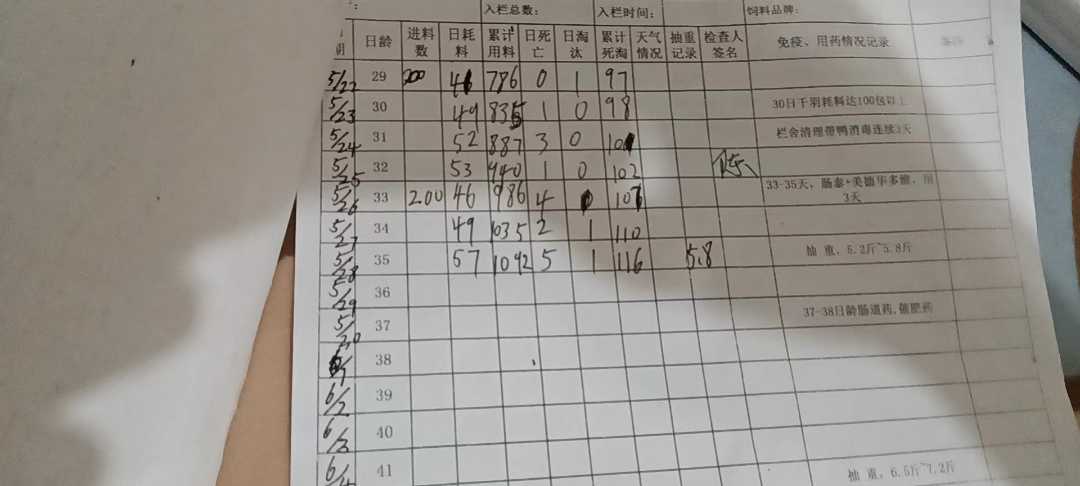 入栏总数: 入栏时间: 饲料品牌:
期 日龄 进料数 日耗料 累计用料 日死亡 日淘汰 累计死淘 天气情况 抽重记录 检查人签名 免疫、用药情况记录
5/22 29 200 46 786 0 1 97
5/23 30 49 835 1 0 98 30日千羽耗料达100包以上
5/24 31 52 887 3 0 101 栏舍清理带鸭消毒连续3天
5/25 32 53 940 1 0 102 陈
5/26 33 200 46 986 4 107 33-35天,肠泰+美德华多维,用3天
5/27 34 49 1035 2 1 110
5/28 35 57 1092 5 1 116 5.8 抽重,5.2斤~5.8斤
5/29 36
5/30 37 37-38日龄肠道药,催肥药
6/1 38
6/2 39
6/3 40
6/4 41 抽重,6.5斤~7.2斤